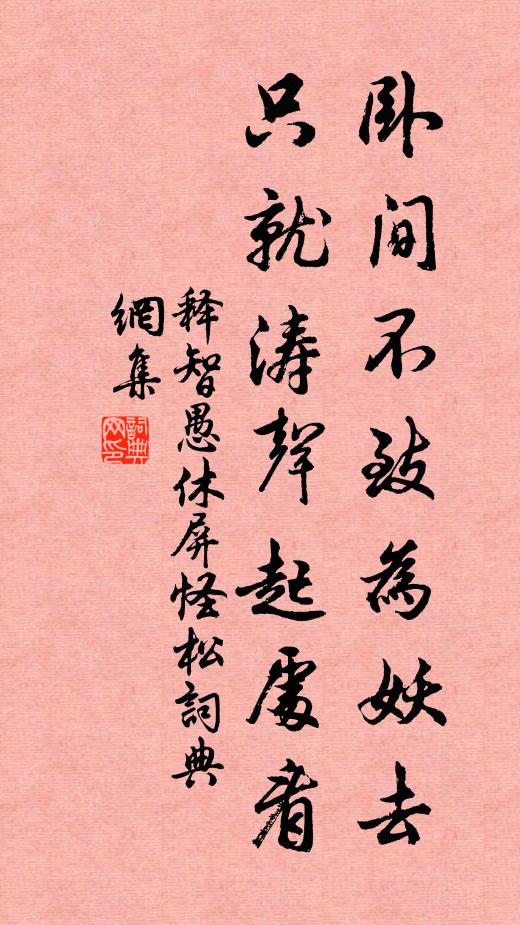 卧间不致為妖去
只就涛聲起處看
释智愚休屏怪松詞典
網集
詞典網印